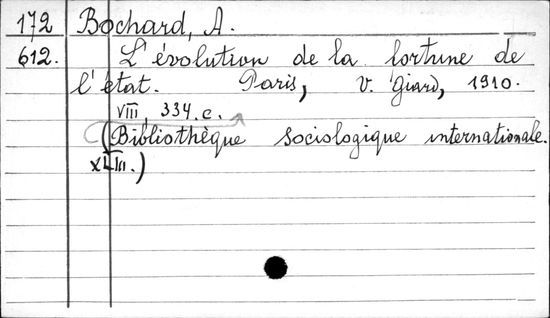 172 Bochard, A.
612. L'évolution de la fortune de
l'état. Paris, V. Giard, 1910.
VIII, 334.c.
(Bibliothèque sociologique internationale.
XLIII.)